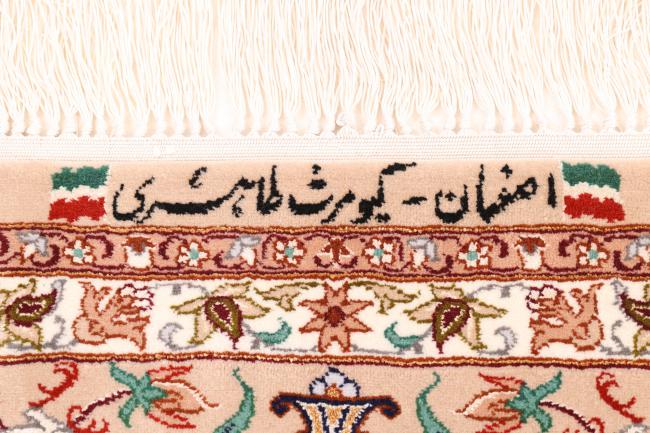 اصفهان - کیومرث طاهری